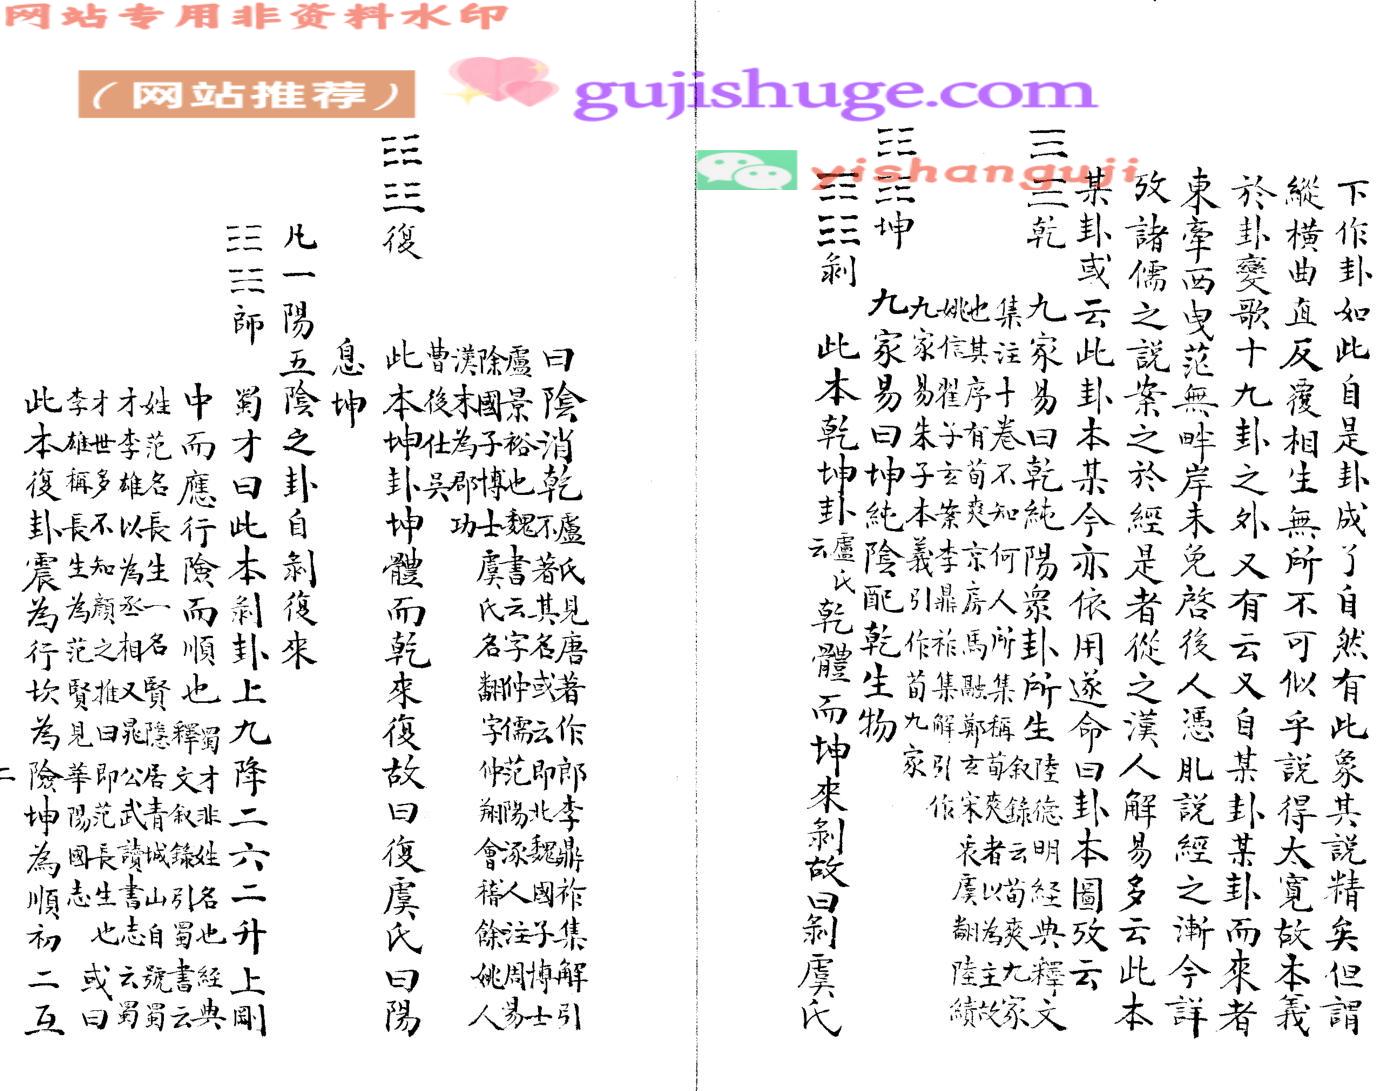 网站专用非资料水印
（网站推荐）
gujishuge.com
yishanguji
下作卦如此自是卦成了自然有此象其説精矣但謂
縱横曲直反覆相生無所不可似乎説得太寬故本義
於卦變歌十九卦之外又有云又自某卦某卦而來者
東牽西曳茫無畔岸未免啓後人憑肊説經之漸今詳
攷諸儒之説案之於經是者從之漢人解易多云此本
某卦或云此卦本某今亦依用遂命曰卦本圖攷云
☰☰乾
九家易曰乾純陽衆卦所生陸德明經典釋文
叙錄云荀爽九家
集注十卷不知何人所集稱荀爽者以為主故
也其序有荀爽京房馬融鄭玄宋衷虞翻陸績
姚信翟子玄案李鼎祚集解引作
九家易朱子本義引作荀九家
☷☷坤
九家易曰坤純陰配乾生物
☶☷剝
此本乾坤卦盧氏
云乾體而坤來剝故曰剝虞氏
曰陰消乾盧氏見唐著作郎李鼎祚集解引
不著其名或云即北魏國子博士
盧景裕也魏書云字仲儒范陽涿人注周易
除國子博士虞氏名翻字仲翔會稽餘姚人
漢末為郡功
曹後仕吳
☷☳復
此本坤卦坤體而乾來復故曰復虞氏曰陽
息坤
凡一陽五陰之卦自剝復來
☷☵師
蜀才曰此本剝卦上九降二六二升上剛
中而應行險而順也蜀才非姓名也經典
釋文叙錄引蜀書云
姓范名長生一名賢隱居青城山自號蜀
才李雄以為丞相又晁公武讀書志云蜀
才世多不知顔之推曰即范長生也或曰
李雄稱長生為范賢見華陽國志
此本復卦震為行坎為險坤為順初二互
二